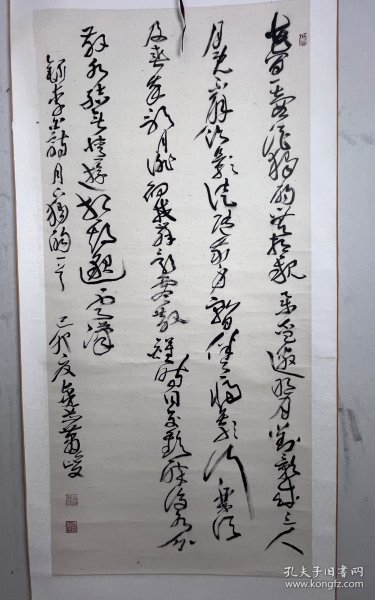 花間一壺酒獨酌無相親舉杯邀明月對影成三人
月既不解飲影徒隨我身暫伴月將影行樂須
及春我歌月徘徊我舞影零亂醒時同交歡醉後各分
散永結無情遊相期邈雲漢
錄李白詩月下獨酌一首 己卯夏
孔夫子旧书网
www.kongfz.com